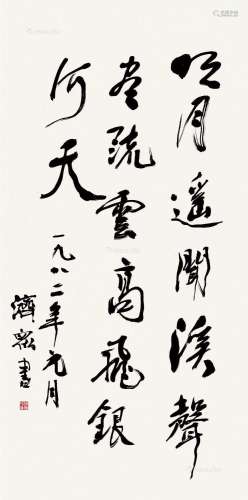 月遥聞溪聲
流雲高飛銀
河天
一九八二年元月
濟眾書